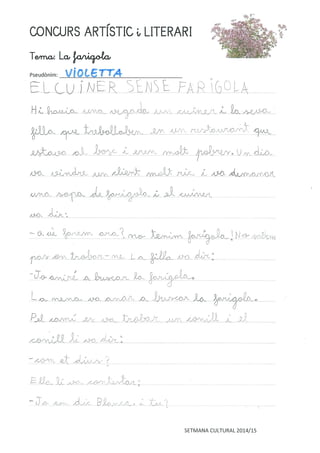 CONCURS ARTÍSTIC i LITERARI
Tema: La farigola
Pseudònim: VIOLETTA
EL CUINER SENSE FARIGOLA
Hi havia una vegada un cuiner i la seva
filla que treballaben en un restaurant que
estava al bosc i eren molt pobres. Un dia
va vindre un client molt ric i va demanar
una sopa de farigola i el cuiner
va dir:
farem ara? no tenim farigola! No sabem
pas on trobar-ne i la filla va dir:
-Jo aniré a buscar la farigola.
La nena va anar a buscar la farigola.
Pel camí es va trobar un conill i el
conill li va dir:
-com et dius?
Ella li va contestar:
-Jo em dic Blanca, i tu?
SETMANA CULTURAL 2014/15